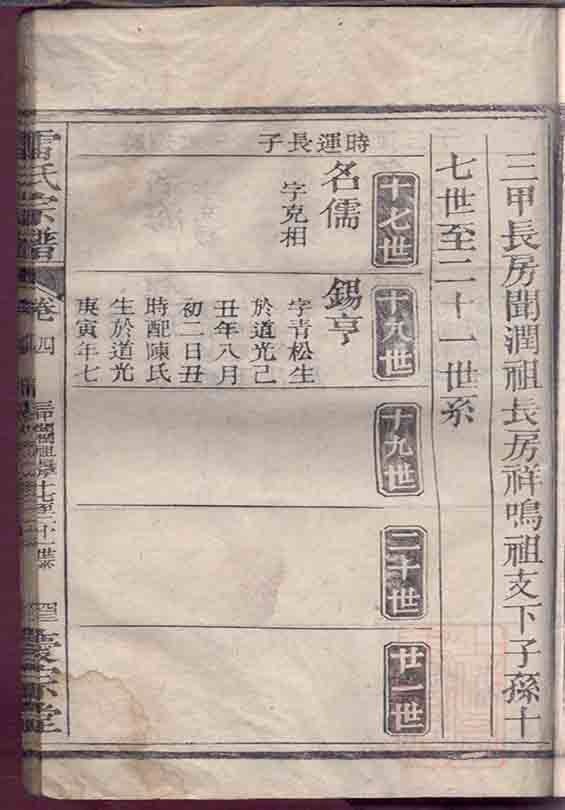 三甲長房聞潤祖長房祥鳴祖支下子孫十
七世至二十一世系
十七世
十八世
十九世
二十世
廿一世
時運長子
名儒
字克相
錫亨
字青松生
於道光己
丑年八月
初二日丑
時配陳氏
生於道光
庚寅年七
雷氏宗譜
卷四